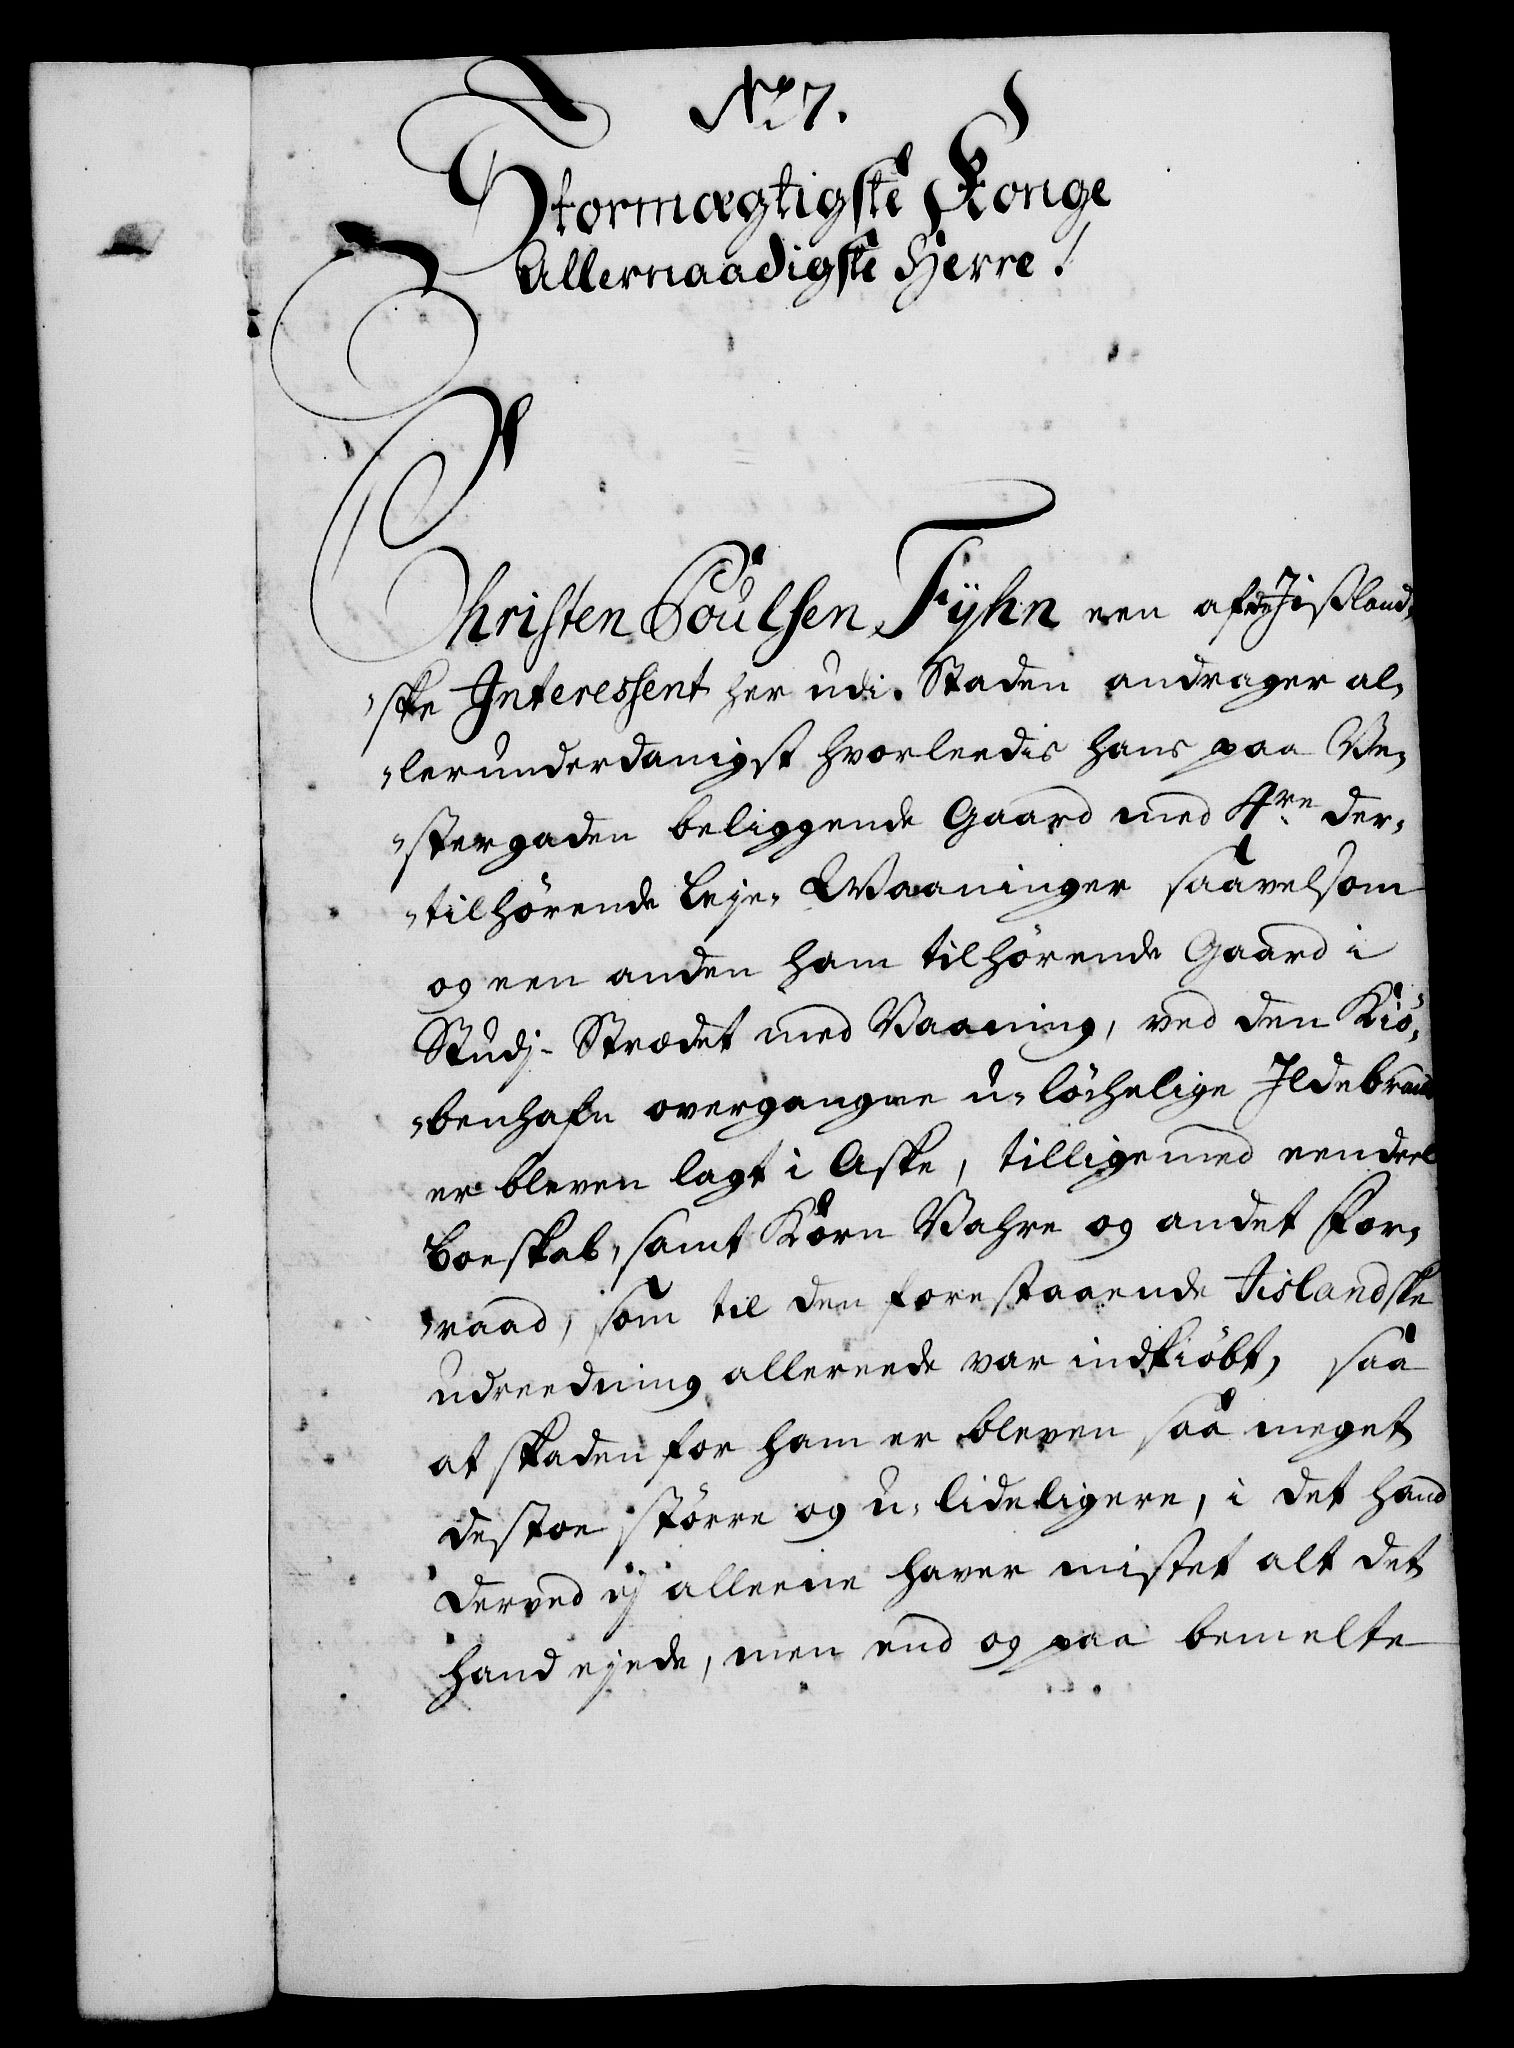 No 7.
Stormægtigste Konge
Allernaadigste Herre!
Christen Poulsen Fyhn een af de Jissland,
"ske Interessent her udi Staden andrager al,
"lerunderdanigst hvorleedis hans paa Ve,
"stergaden beliggende Gaard med 4re der,
"tilhörende Leje, Waaninger saavelsom
og een anden ham tilhörende Gaard i
Studj- Strædet med Vaaning, ved den Kiö,
"benhafn overgangne u, löchelige Ildebrand
er bleven lagt i Aske, tilligemed eendeel
boeskab, samt Korn Vahre og andet For,
"raad, som til den forestaaende Jislandske
udreedning allereede var indkiöbt, saa
at skaden for ham er bleven saa meget
destoe större og u, lideligere, i det hand
derved ej alleene haver mistet alt det
hand ejede, men end og paa bemelte